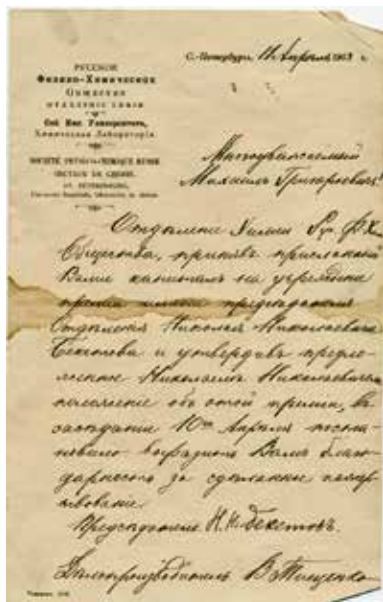 РУССКОЕ
Физико-Химическое
Общество
ОТДѢЛЕНІЕ ХИМІИ
Спб. Имп. Университетъ,
Химическая Лабораторія.
SOCIÉTÉ PHYSICO-CHIMIQUE RUSSE
SECTION DE CHIMIE.
ST. PETERSBOURG,
С.-Петербургъ, 11 Апрѣля 1903 г.
Многоуважаемый
Михаилъ Григорьевичъ!
Отдѣленіе Химіи Рус. Ф. Х.
Общества, принявъ присланный
Вами капиталъ на учрежденіе
преміи имени предсѣдателя
Отдѣленія Николая Николаевича
Бекетова и утвердивъ предло-
женное Николаемъ Николаевичемъ
положеніе объ этой преміи, въ
засѣданіи 10го Апрѣля поста-
новило выразить Вамъ благо-
дарность за сдѣланное пожер-
твованіе.
Предсѣдатель Н. Н. Бекетовъ.
Дѣлопроизводитель В. Тищенко